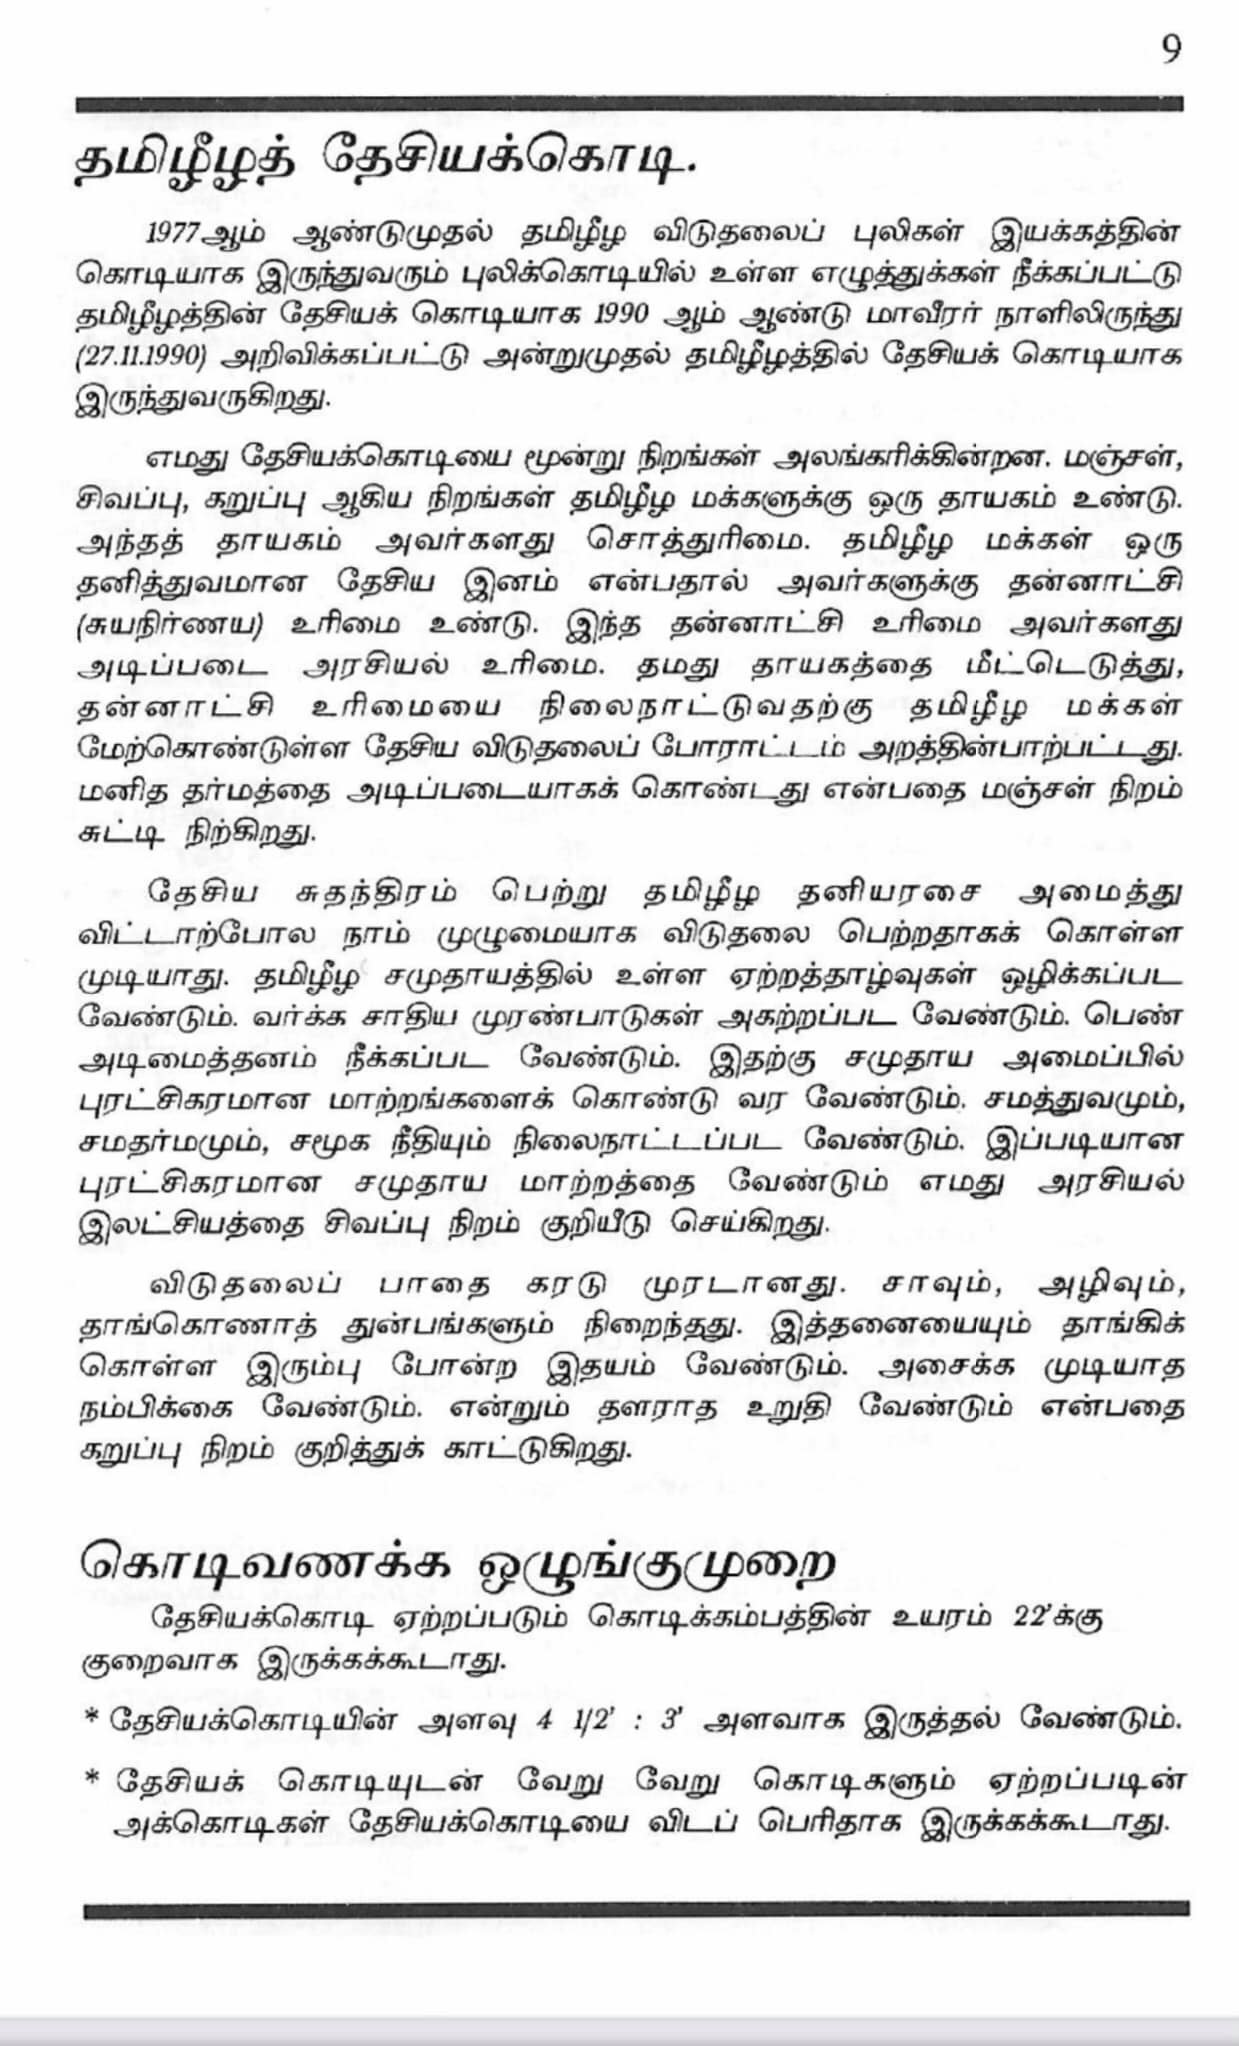 9
தமிழீழத் தேசியக்கொடி.
1977ஆம் ஆண்டுமுதல் தமிழீழ விடுதலைப் புலிகள் இயக்கத்தின்
கொடியாக இருந்துவரும் புலிக்கொடியில் உள்ள எழுத்துக்கள் நீக்கப்பட்டு
தமிழீழத்தின் தேசியக் கொடியாக 1990 ஆம் ஆண்டு மாவீரர் நாளிலிருந்து
(27.11.1990) அறிவிக்கப்பட்டு அன்றுமுதல் தமிழீழத்தில் தேசியக் கொடியாக
இருந்துவருகிறது.
எமது தேசியக்கொடியை மூன்று நிறங்கள் அலங்கரிக்கின்றன. மஞ்சள்,
சிவப்பு, கறுப்பு ஆகிய நிறங்கள் தமிழீழ மக்களுக்கு ஒரு தாயகம் உண்டு.
அந்தத் தாயகம் அவர்களது சொத்துரிமை. தமிழீழ மக்கள் ஒரு
தனித்துவமான தேசிய இனம் என்பதால் அவர்களுக்கு தன்னாட்சி
(சுயநிர்ணய) உரிமை உண்டு. இந்த தன்னாட்சி உரிமை அவர்களது
அடிப்படை அரசியல் உரிமை. தமது தாயகத்தை மீட்டெடுத்து,
தன்னாட்சி உரிமையை நிலைநாட்டுவதற்கு தமிழீழ மக்கள்
மேற்கொண்டுள்ள தேசிய விடுதலைப் போராட்டம் அறத்தின்பாற்பட்டது.
மனித தர்மத்தை அடிப்படையாகக் கொண்டது என்பதை மஞ்சள் நிறம்
சுட்டி நிற்கிறது.
தேசிய சுதந்திரம் பெற்று தமிழீழ தனியரசை அமைத்து
விட்டாற்போல நாம் முழுமையாக விடுதலை பெற்றதாகக் கொள்ள
முடியாது. தமிழீழ சமுதாயத்தில் உள்ள ஏற்றத்தாழ்வுகள் ஒழிக்கப்பட
வேண்டும். வர்க்க சாதிய முரண்பாடுகள் அகற்றப்பட வேண்டும். பெண்
அடிமைத்தனம் நீக்கப்பட வேண்டும். இதற்கு சமுதாய அமைப்பில்
புரட்சிகரமான மாற்றங்களைக் கொண்டு வர வேண்டும். சமத்துவமும்,
சமதர்மமும், சமூக நீதியும் நிலைநாட்டப்பட வேண்டும். இப்படியான
புரட்சிகரமான சமுதாய மாற்றத்தை வேண்டும் எமது அரசியல்
இலட்சியத்தை சிவப்பு நிறம் குறியீடு செய்கிறது.
விடுதலைப் பாதை கரடு முரடானது. சாவும், அழிவும்,
தாங்கொணாத் துன்பங்களும் நிறைந்தது. இத்தனையையும் தாங்கிக்
கொள்ள இரும்பு போன்ற இதயம் வேண்டும். அசைக்க முடியாத
நம்பிக்கை வேண்டும். என்றும் தளராத உறுதி வேண்டும் என்பதை
கறுப்பு நிறம் குறித்துக் காட்டுகிறது.
கொடிவணக்க ஒழுங்குமுறை
தேசியக்கொடி ஏற்றப்படும் கொடிக்கம்பத்தின் உயரம் 22'க்கு
குறைவாக இருக்கக்கூடாது.
* தேசியக்கொடியின் அளவு 4 1/2' : 3' அளவாக இருத்தல் வேண்டும்.
* தேசியக் கொடியுடன் வேறு வேறு கொடிகளும் ஏற்றப்படின்
அக்கொடிகள் தேசியக்கொடியை விடப் பெரிதாக இருக்கக்கூடாது.